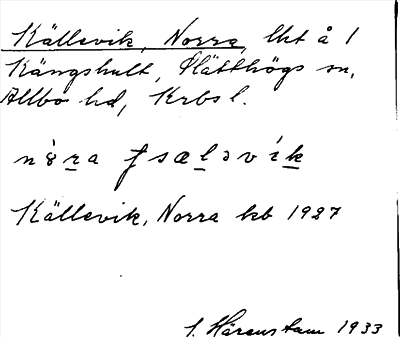 Källevik, Norra, lht å 1
Kängshult, Slätthögs sn,
Allbo hd, Krbs l.
Källevik, Norra kb 1927
S. Härenstam 1933